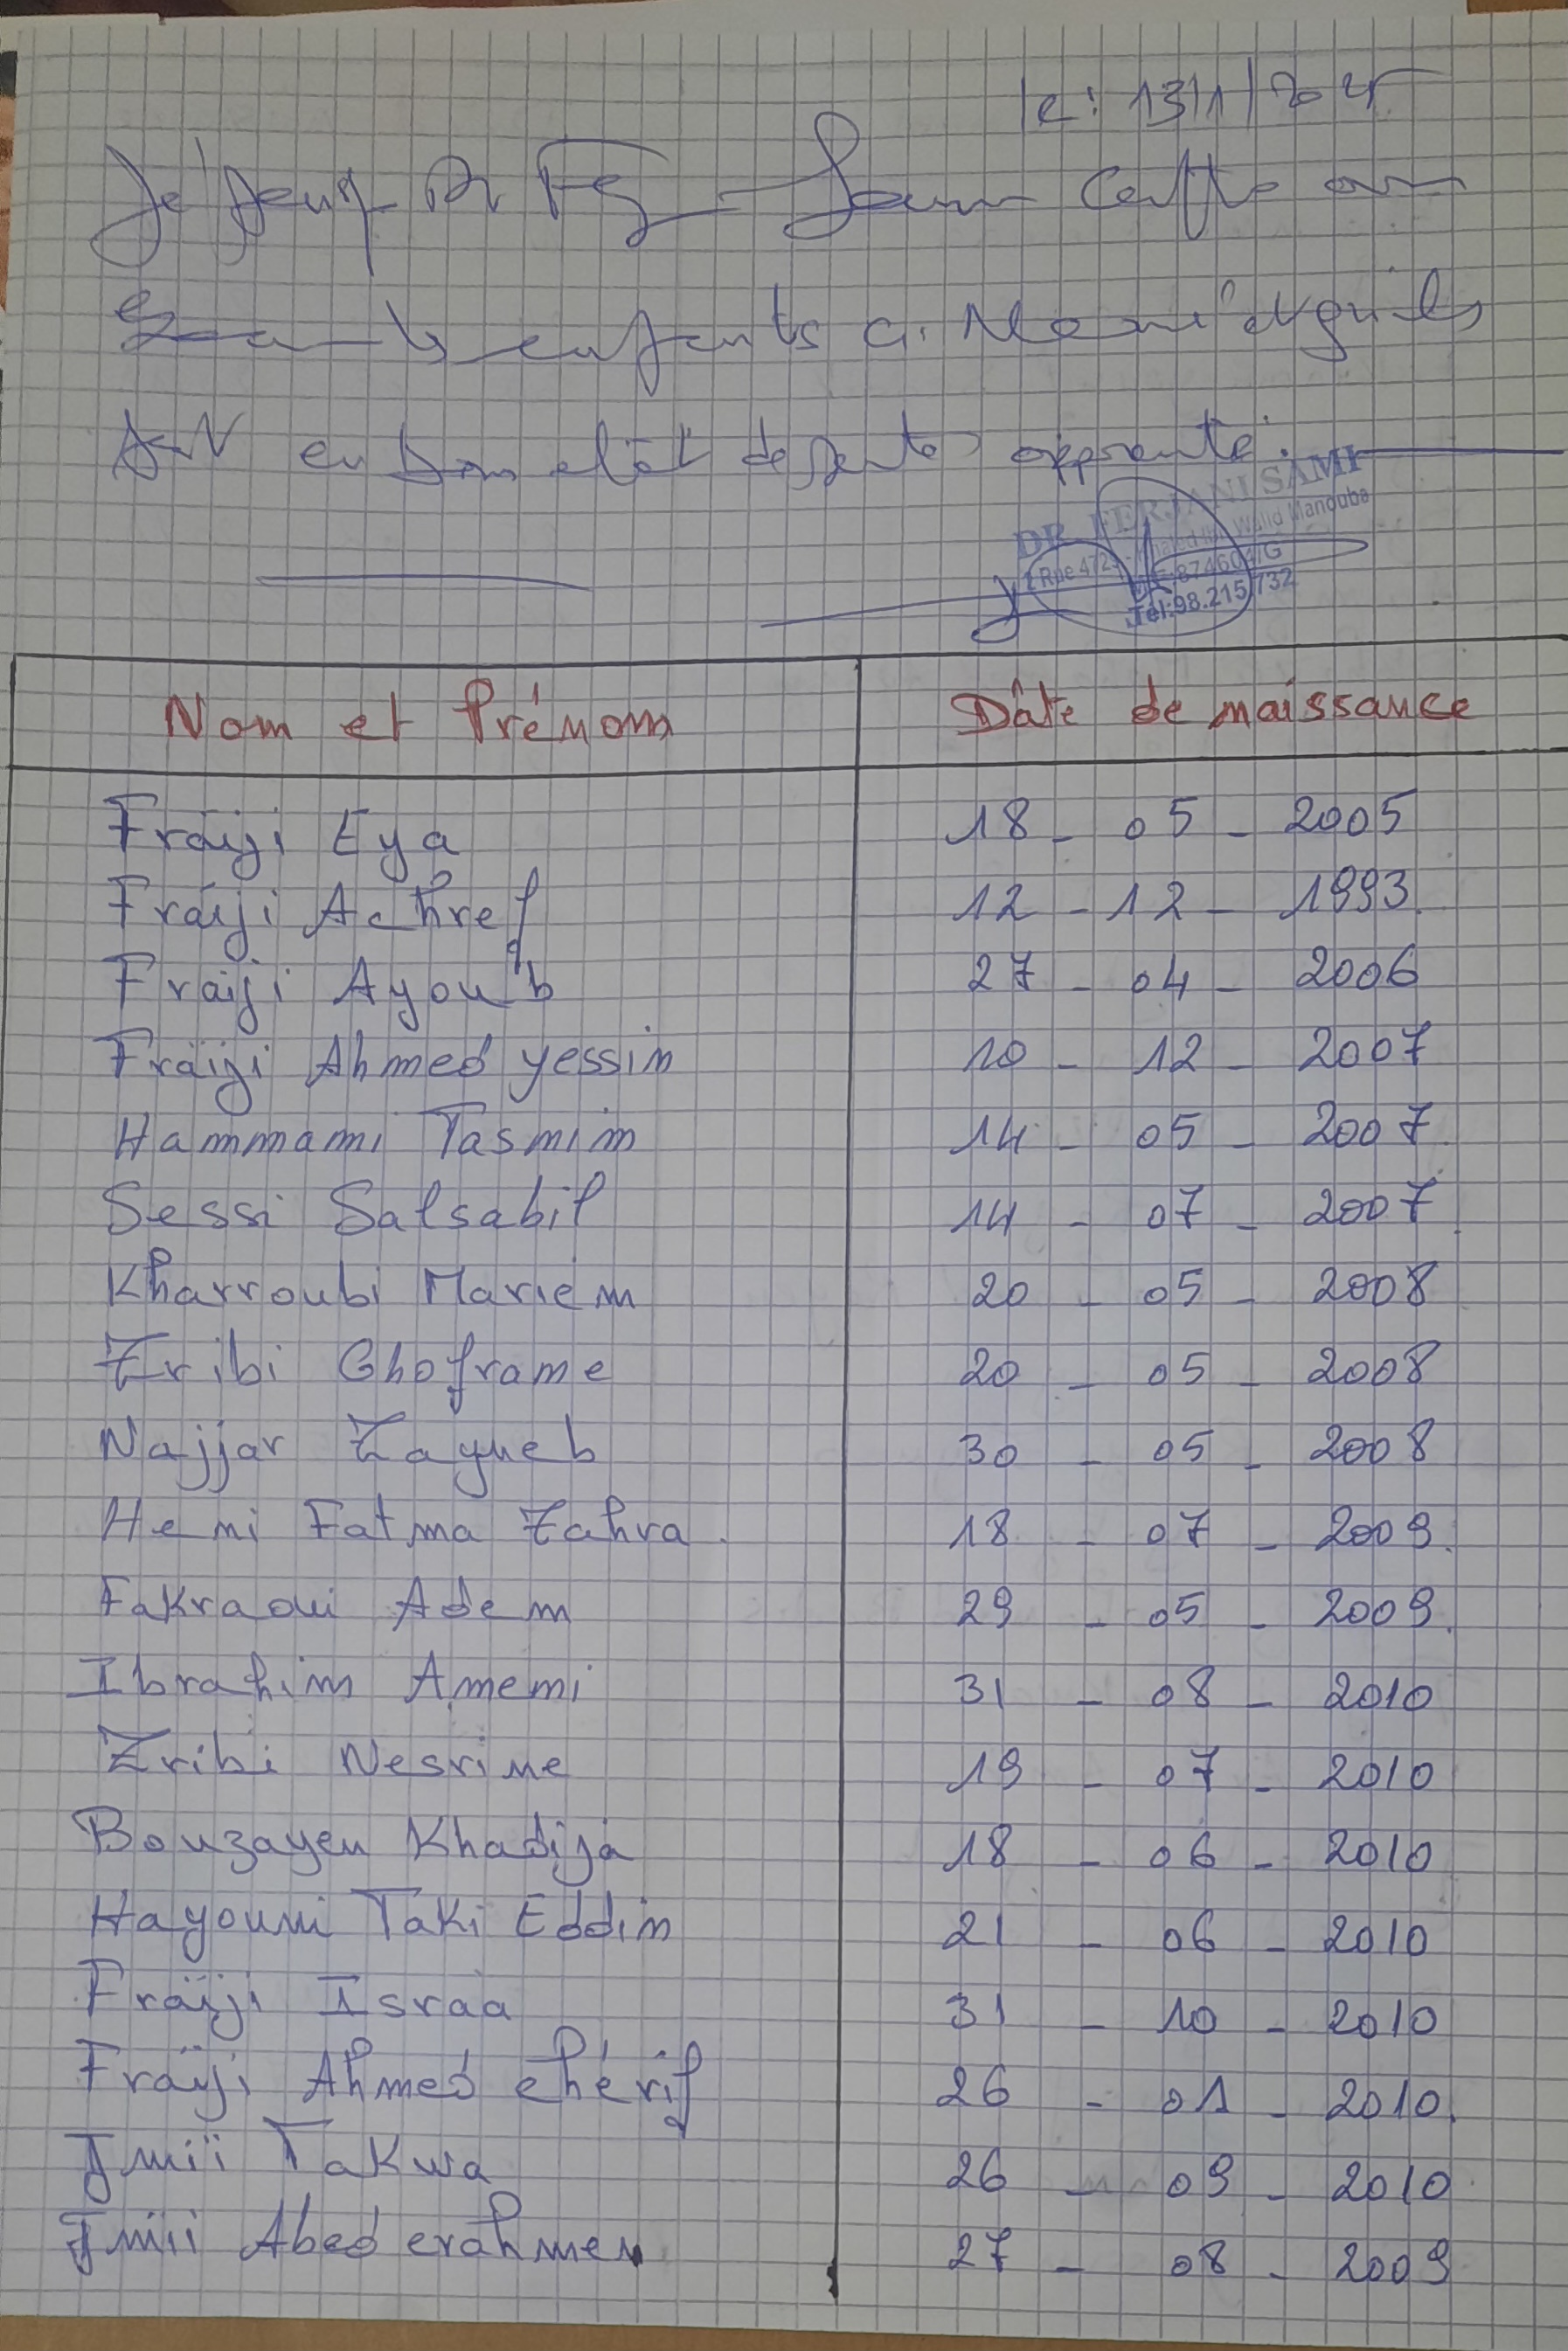 le: 13/1/2025
Je Dr certifie avoir
enfants
en bon etat de sante apparente.
DR FERJANI SAMI
Rue 4723 - Khaled Ibn Walid Manouba
Tél:98.215.732
Nom et Prénom Dâte de naissance
Fraiji Eya 18 - 05 - 2005
Fraiji Achref 12 - 12 - 1993.
Fraiji Ayoub 27 - 04 - 2006
Fraiji Ahmed yessin 10 - 12 - 2007
Hammami Tasnim 14 - 05 - 2007
Sessi Salsabil 14 - 07 - 2007
Kharroubi Mariem 20 - 05 - 2008
Zribi Ghoframe 20 - 05 - 2008
Najjar Zayneb 30 - 05 - 2008
Heni Fatma Zahra 18 - 07 - 2009.
Fakraoui Adem 29 - 05 - 2009.
Ibrahim Amemi 31 - 08 - 2010
Zribi Nesrine 19 - 07 - 2010
Bouzayen Khadija 18 - 06 - 2010
Hayouni Taki Eddin 21 - 06 - 2010
Fraïji Israa 31 - 10 - 2010
Fraïji Ahmed chérif 26 - 01 - 2010.
Jmii Takwa 26 - 09 - 2010
Jmii Abed erahmen 27 - 08 - 2009